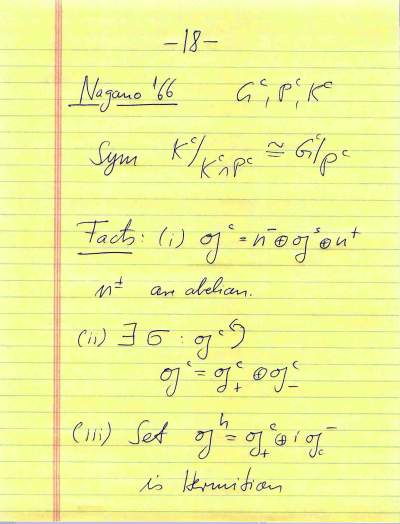 -18-
Nagano '66 G^c, P^c, K^c
Sym K^c/K^c∩P^c ≅ G^c/P^c
Facts: (i) 𝔤^c = n^- ⊕ 𝔤^s ⊕ n^+
n^± are abelian.
(ii) ∃ σ : 𝔤^c ↺
𝔤^c = 𝔤^c_+ ⊕ 𝔤^c_-
(iii) Set 𝔤^h = 𝔤^c_+ ⊕ i 𝔤^-_c
is Hermitian